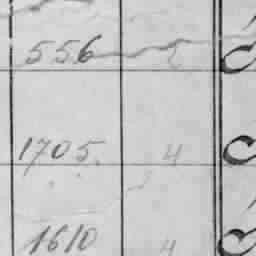 556
1705. 4
1610 4